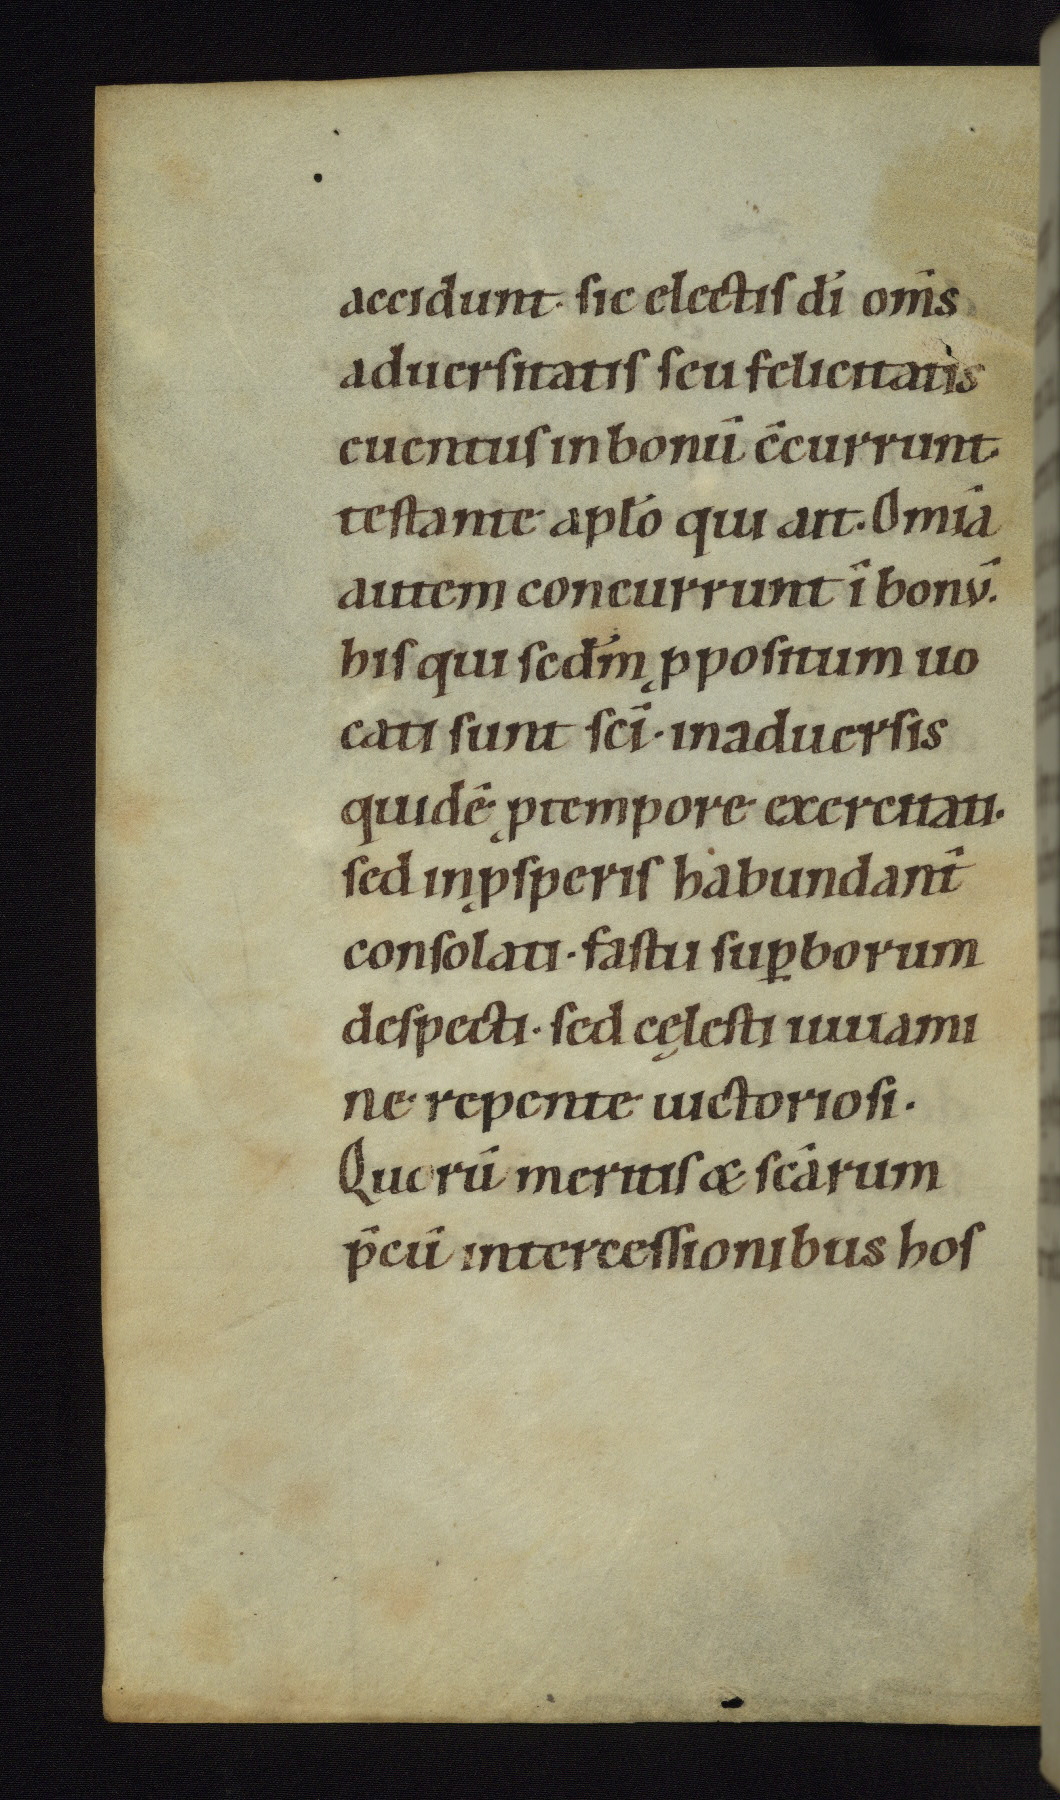 accidunt. sic electis dī om̄s
aduersitatis seu felicitatis
euentus in bonū c̄currunt.
testante apl̄o qui ait. Om̄ia
autem concurrunt ī bonv̄.
his qui scd̄m p̱positum uo
cati sunt scī. in aduersis
quidē p̱tempore exercitati.
sed inp̱speris habundant̄
consolati. fastu sup̱borum
despecti. sed cęlesti iuuami
ne repente uictoriosi.
Quorū meritis & scārum
p̄cū intercessionibus hos